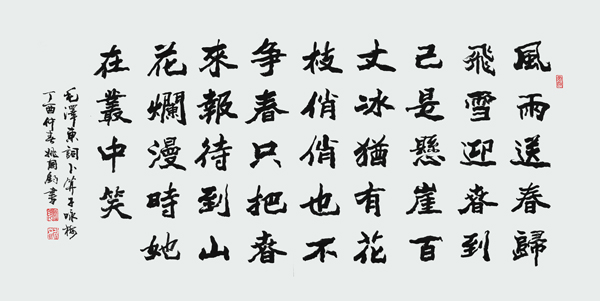 風雨送春歸
飛雪迎春到
已是懸崖百
丈冰猶有花
枝俏俏也不
争春只把春
來報待到山
花爛漫時她
在叢中笑
毛澤東詞卜算子咏梅
丁酉仲春姚書